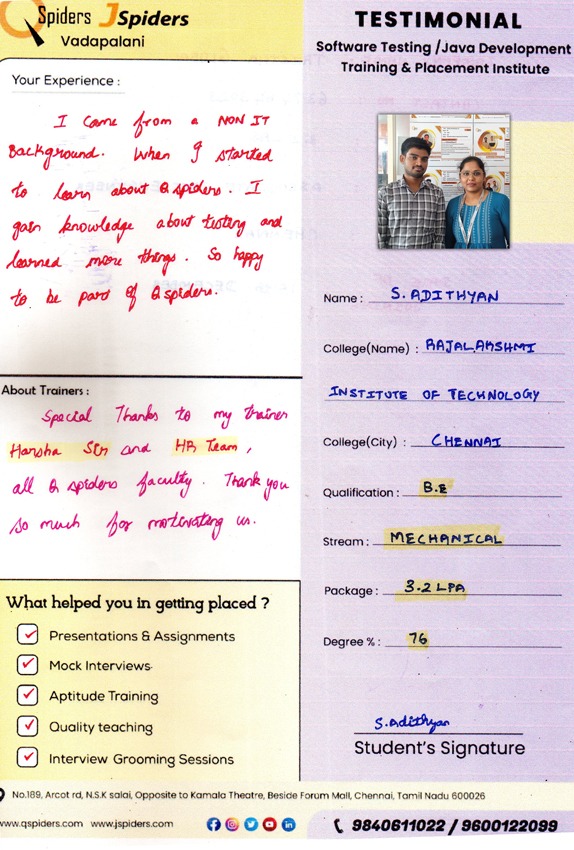 Spiders JSpiders
Vadapalani
Your Experience :
I came from a NON IT
Background. When I started
to learn about Q spiders. I
gain knowledge about testing and
learned more things. So happy
to be part of Q spiders.
About Trainers :
Special Thanks to my trainer
Harsha Sir and HR Team,
all Q spiders faculty. Thank you
so much for motivating us.
What helped you in getting placed ?
Presentations & Assignments
Mock Interviews
Aptitude Training
Quality teaching
Interview Grooming Sessions
TESTIMONIAL
Software Testing /Java Development
Training & Placement Institute
Name : S. ADITHYAN
College(Name) : RAJALAKSHMI
INSTITUTE OF TECHNOLOGY
College(City) : CHENNAI
Qualification : B.E
Stream : MECHANICAL
Package : 3.2 LPA
Degree % : 76
S.Adithyan
Student's Signature
No.189, Arcot rd, N.S.K salai, Opposite to Kamala Theatre, Beside Forum Mall, Chennai, Tamil Nadu 600026
www.qspiders.com www.jspiders.com
9840611022 / 9600122099